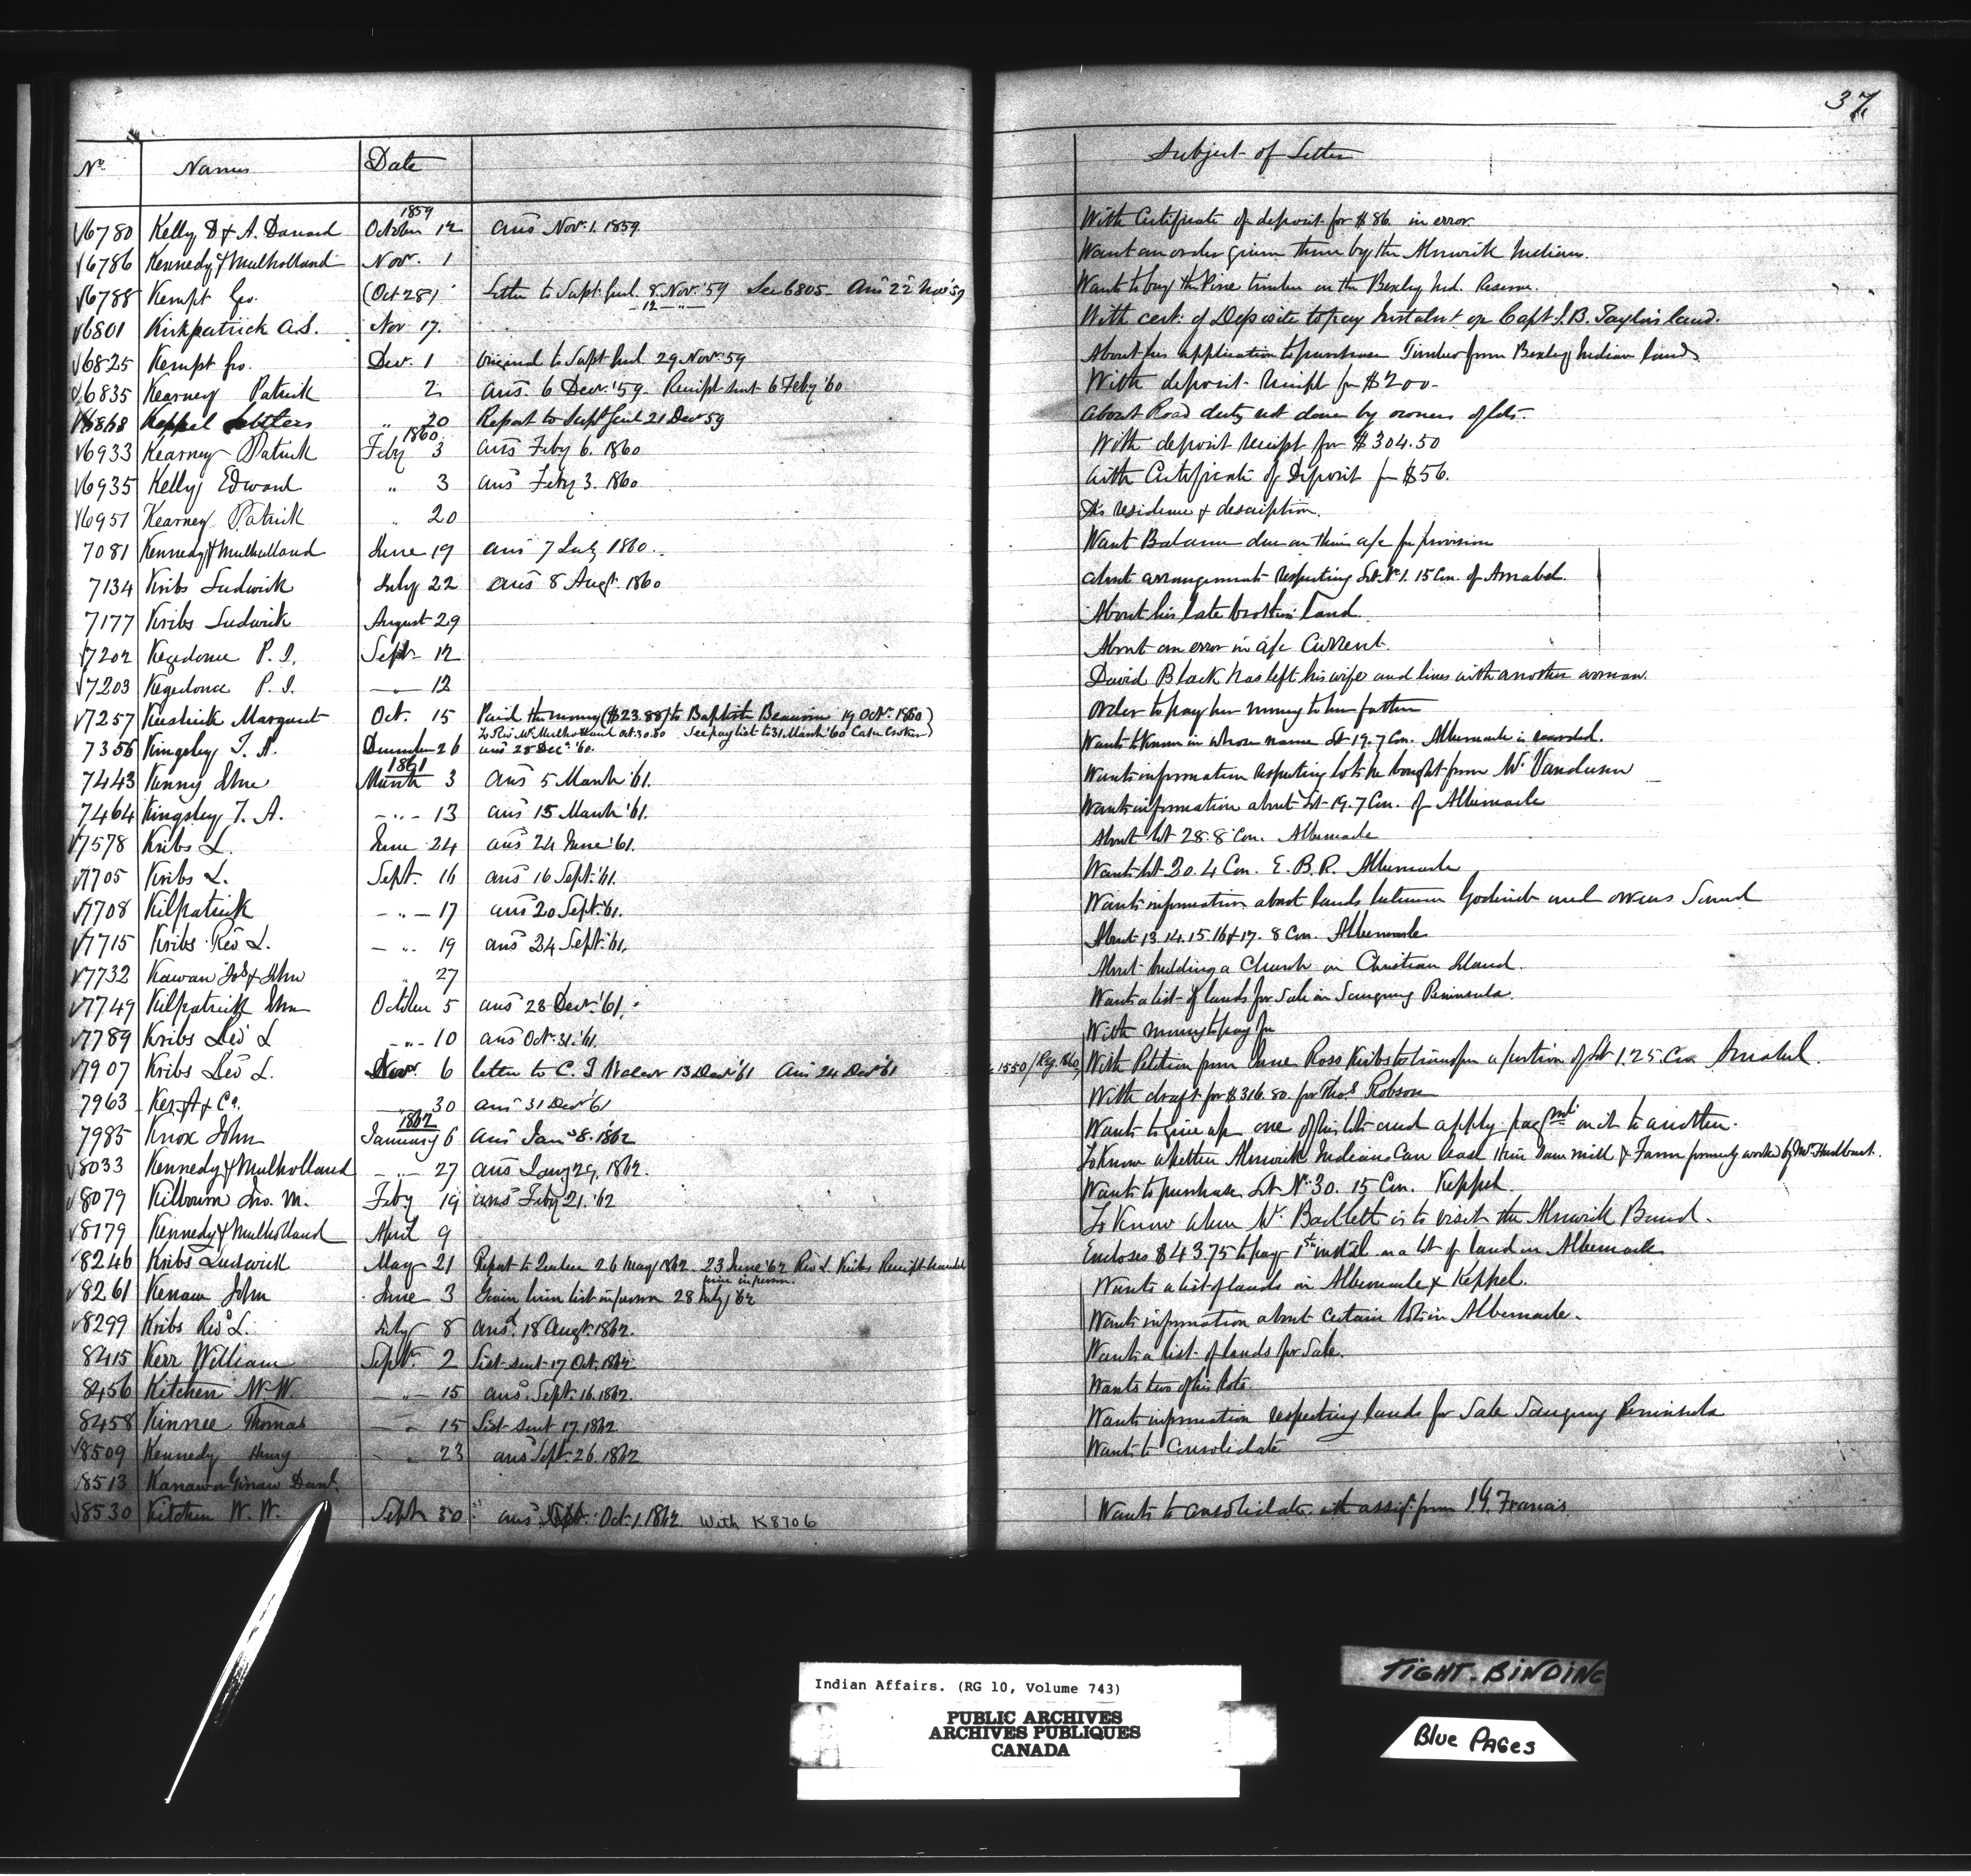 37
No. Names Date Subject of Letter
1859
√6780 Kelly D & A. Daniard October 12 ansd Nov. 1. 1859. With Certificate of deposit for $86 in error
√6786 Kennedy & Mulholland Nov. 1 Want an order given them by the Alnwick Indians.
√6788 Kempt Geo. (Oct 28) Letter to Supt. Genl. 8. Nov. '59 See 6805 - Ansd 22 Nov '59 Wants to buy the Pine timber on the Bexley Ind. Reserve.
- 12 - "
√6801 Kirkpatrick A.S. Nov 17. With cert. of Deposite to pay Instalmt on Capt. J. B. Taylor's land.
√6825 Kempt Geo. Dec. 1 Original to Supt Genl 29 Nov. '59 About his application to purchase Timber from Bexley Indian lands
√6835 Kearney Patrick 2 ansd 6 Decr. '59 - Receipt sent 6 Feby '60 With deposit receipt for $200-
√6868 Keppel Settlers " 20 Report to Supt Genl 21 Decr 59 About Road duty not done by owners of lots-
1860
√6933 Kearney Patrick Feby 3 ansd Feby 6. 1860 With deposit receipt for $304.50
√6935 Kelly Edward " 3 ansd Feby 3. 1860 With Certificate of Deposit for $56.
√6951 Kearney Patrick " 20 His residence & description.
7081 Kennedy & Mulholland June 19 ansd 7 July 1860. Want Balance due on their a/c for provision
7134 Kribs Ludwick July 22 ansd 8 Augt. 1860 About arrangement respecting Lot No. 1. 15 Con. of Amabel.
7177 Kribs Ludwick August 29 About his late brother's land.
√7202 Kegedonce P. J. Sept 12 About an error in a/c Current.
√7203 Kegedonce P. J. — " 12 David Black has left his wife and lives with another woman.
√7257 Margaret Oct. 15 Paid the money ($23.88) to Baptiste 19 Octr. 1860) Order to pay her money to her father
To Rev. Wm. Mulholland Oct. 30. 60 See pay list to 31 March '60 Cash
7356 Kingsley T. A. December 26 ansd 28 Decr. '60. Wants to know in whose name Lot 19. 7 Con. Albemarle is recorded.
1861
7443 Kenny John March 3 ansd 5 March '61. Wants information respecting lots he bought from Mr. Vandusen
7464 Kingsley T. A. - " - 13 ansd 15 March '61. Wants information about Lot 19. 7 Con. of Albemarle
√7578 Kribs L. June 24 ansd 24 June '61. About lot 28. 8 Con. Albemarle
√7705 Kribs L. Sept. 16 ansd 16 Sept. '61. Wants lot 20. 4 Con. E. B. R. Albemarle
√7708 Kilpatrick - " - 17 ansd 20 Sept. '61. Wants information about lands between Goderich and Owens Sound
√7715 Kribs Revd L. - " 19 ansd 24 Sept. '61. About 13. 14. 15. 16 & 17. 8 Con. Albemarle
√7732 Kawan Jos & John " 27 About building a Church on Christian Island.
√7749 Kilpatrick John October 5 ansd 23 Decr. '61. Wants a list of lands for sale in Saugeeng Peninsula.
√7789 Kribs Revd L - " - 10 ansd Oct. 31. '61. With money to pay for
√7907 Kribs Revd L. Novr. 6 letter to C. J. 13 Decr '61 Ansd 24 Decr '61 1550/Reg. 1860, With Petition from Jane Ross Kribs to transfer a portion of Lot 1. 25. Con Amabel.
7963 Ker A & Co. " 30 ansd 31 Decr '61 With draft for $316.80. for Thos. Robson
1862
7985 Knox John January 6 ansd Jany 8. 1862 Wants to give up one of his lots and apply paymt. on it to another.
√8033 Kennedy & Mulholland - " - 27 ansd Jany 29, 1862. To know whether Alnwick Indians can lease their Saw mill & Farm formerly worked by Mr. Hurlburt.
√8079 Kilbourn Jno. M. Feby 19 ansd Feby 21. '62 Wants to purchase Lot No. 30. 15 Con. Keppel.
√8179 Kennedy & Mulholland April 9 To know when Mr. Bartlett is to visit the Alnwick Band.
√8246 Kribs Ludwick May 21 Report to Quebec 26 May 1862. 23 June '62 Revd L. Kribs Receipt handed Encloses $43.75 to pay 1st instal. on a lot of land in Albemarle
him in person.
√8261 Kenaw John June 3 Given him list in person 28 July '62 Wants a list of lands in Albemarle & Keppel.
√8299 Kribs Revd L. July 8 ansd. 18 Augt. 1862. Wants information about certain lots in Albemarle.
8415 Kerr William Sept. 2 List sent 17 Oct. 1862 Wants a list of lands for Sale.
8456 Kitchen W. W. — " — 15 ansd. Sept. 16. 1862. Wants two of his lots.
8458 Kinnee Thomas — " 15 List sent 17. 1862 Wants information respecting lands for Sale Saugeeng Peninsula
√8509 Kennedy Henry - " 23 ansd Sept. 26. 1862 Wants to consolidate
√8513 Kanawa Ginaw Danl.
√8530 Kitchen W. W. Sept 30 ansd Oct. 1. 1862. With K8706 Wants to consolidate with assigt. from Francis
Indian Affairs. (RG 10, Volume 743)
PUBLIC ARCHIVES
ARCHIVES PUBLIQUES
CANADA
TIGHT-BINDING
Blue PAGes